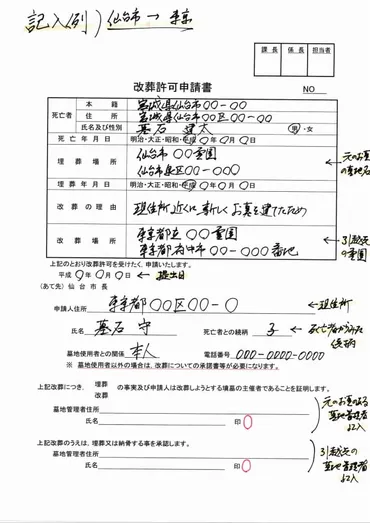 記入例)仙台市→東京
課長 係長 担当者
改葬許可申請書
NO
死亡者
本籍 宮城県仙台市〇〇-〇〇
住所 宮城県仙台市〇〇区〇〇-〇〇
氏名及び性別 墓石 建太 男・女
死亡年月日 明治・大正・昭和・平成〇年〇月〇日
埋葬場所 仙台市 〇〇霊園
仙台市泉区〇〇-〇〇〇
←元のお墓の墓地名
埋葬年月日 明治・大正・昭和・平成〇年〇月〇日
改葬の理由 現住所近くに新しくお墓を建てたため
改葬場所 東京都立 〇〇霊園
東京都府中市〇〇-〇〇〇番地
←引越先の霊園
上記のとおり改葬許可を受けたく、申請いたします。
平成〇年〇月〇日 ←提出日
(あて先)仙台市長
申請人住所 東京都〇〇区〇〇-〇 ←現住所
氏名 墓石 守 死亡者との続柄 子
墓地使用者との関係 本人 電話番号 000-0000-0000
※ 墓地使用者以外の場合は、改葬についての承諾書等が必要になります。
上記改葬につき、埋葬 改葬 の事実及び申請人は改葬しようとする墳墓の主催者であることを証明します。
墓地管理者住所
氏名 印
元のお墓のある墓地管理者記入
上記改葬のうえは、埋葬又は納骨する事を承諾します。
墓地管理者住所
氏名 印
引越先の墓地管理者記入